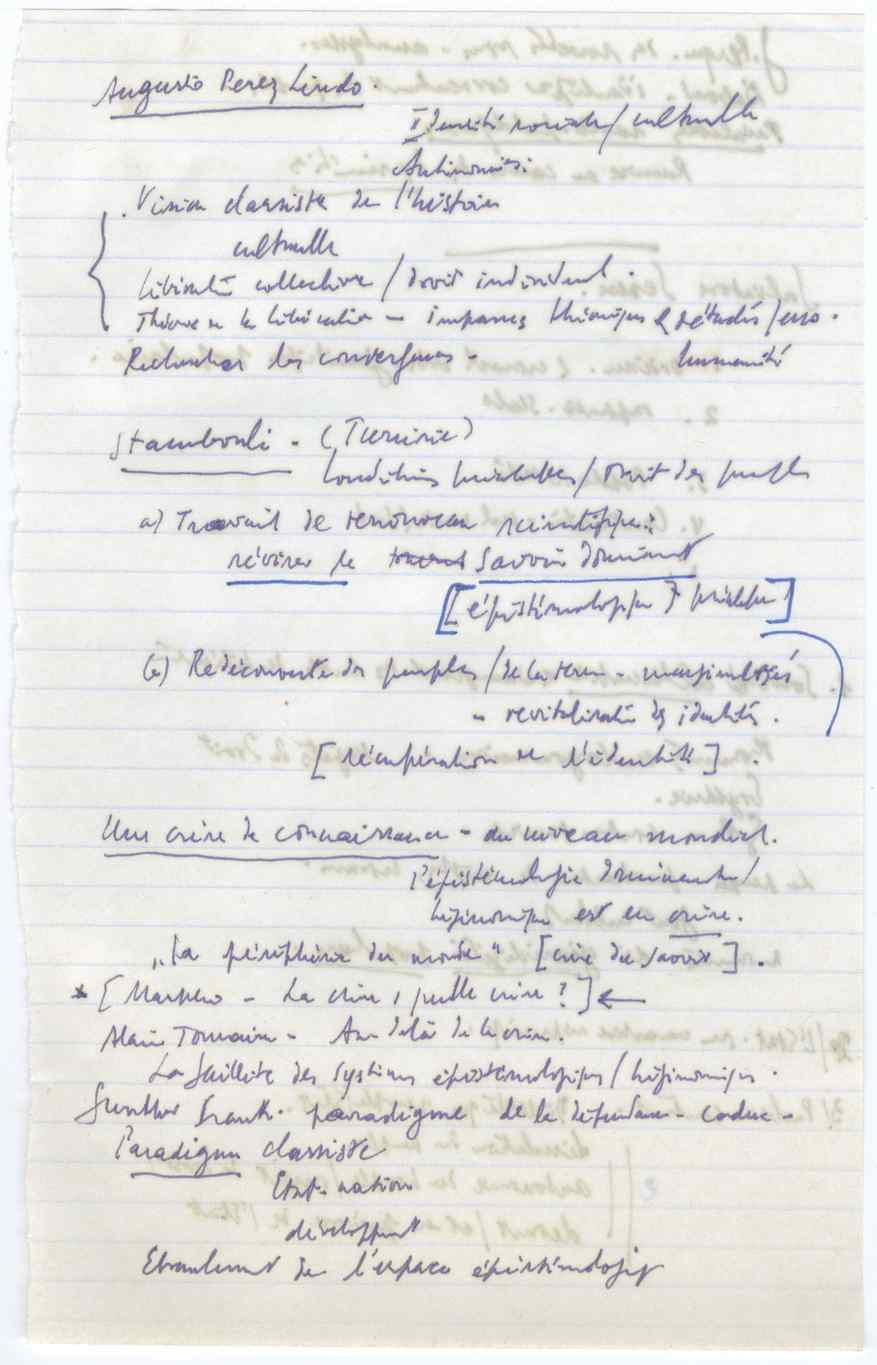 Augusto Perez Lindo.
Identité sociale / culturelle
Antinomies:
. Vision classiste de l'histoire
culturelle
Libération collective / droit individuel.
Théorie de la libération — Impasses théoriques
Rechercher des convergences - humanité
Stambouli - (Tunisie)
Conditions préalables / Droit des peuples
a) Travail de renouveau scientifique:
réviser le savoir dominant
[épistémologique préalable]
b) Redécouverte des peuples / de la terre - marginalisés
- revitalisation des identités.
[récupération de l'identité].
Une crise de connaissance - au niveau mondial.
l'épistémologie dominante /
hégémonique est en crise.
„La périphérie du monde" [crise du savoir].
* [ - La crise, quelle crise ?] ←
Alain Touraine - Au-delà de la crise.
La faillite des systèmes épistémologiques / hégémoniques.
Gunther Frank. paradigme de la dépendance - caduc -
Paradigme classiste
Etat-nation
développement
Ebranlement de l'espace épistémologique